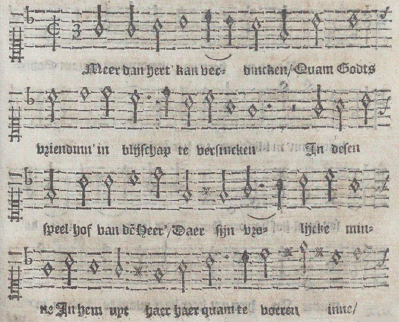 Meer dan hert' kan ver- dincken/Quam Godts
vriendinn' in blijschap te versincken In desen
speel hof van dē Heer'/Daer sijn vro- lijcke min-
ne In hem opt haer haer quam te voeren inne/